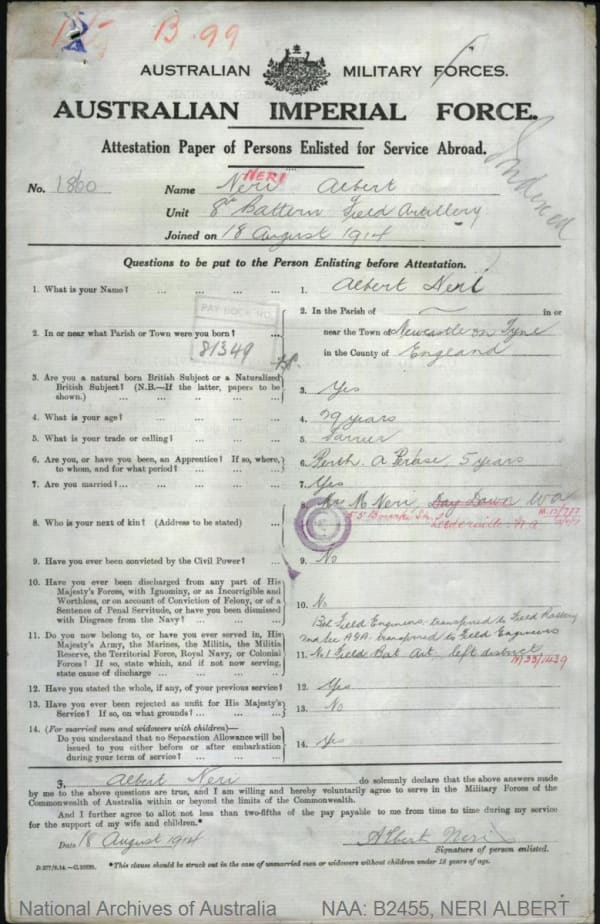 B.99
AUSTRALIAN MILITARY FORCES.
AUSTRALIAN IMPERIAL FORCE.
Attestation Paper of Persons Enlisted for Service Abroad.
NERI
No. 1860 Name Neri Albert
Unit 8th Battery Field Artillery
Joined on 18 August 1914
Questions to be put to the Person Enlisting before Attestation.
1. What is your Name? ... ... ... 1. Albert Neri
PAY BOOK NO.
81349
2. In or near what Parish or Town were you born? ... 2. In the Parish of in or
near the Town of Newcastle on Tyne
in the County of England
3. Are you a natural born British Subject or a Naturalised
British Subject? (N.B.—If the latter, papers to be
shown.) ... ... ... ... 3. Yes
4. What is your age? ... ... ... ... 4. 29 years
5. What is your trade or calling? ... ... ... 5. Farrier
6. Are you, or have you been, an Apprentice? If so, where,
to whom, and for what period? ... ... ... 6. Perth. 5 years
7. Are you married? ... ... ... ... 7. Yes
8. Who is your next of kin? (Address to be stated) ... 8. Mrs M Neri Day Dawn WA
Leederville. WA
9. Have you ever been convicted by the Civil Power? ... 9. No
10. Have you ever been discharged from any part of His
Majesty's Forces, with Ignominy, or as Incorrigible and
Worthless, or on account of Conviction of Felony, or of a
Sentence of Penal Servitude, or have you been dismissed
with Disgrace from the Navy? ... ... ... 10. No
11. Do you now belong to, or have you ever served in, His
Majesty's Army, the Marines, the Militia, the Militia
Reserve, the Territorial Force, Royal Navy, or Colonial
Forces? If so, state which, and if not now serving,
state cause of discharge ... ... ...
Field Engineers. transferred to Field Battery
transferred to Field Engineers
11. No 1 Field Bat Art. left district
M33/1439
12. Have you stated the whole, if any, of your previous service? 12. Yes
13. Have you ever been rejected as unfit for His Majesty's
Service? If so, on what grounds? ... ... ... 13. No
14. (For married men and widowers with children)—
Do you understand that no Separation Allowance will be
issued to you either before or after embarkation
during your term of service? ... ... ... 14. Yes
I, Albert Neri do solemnly declare that the above answers made
by me to the above questions are true, and I am willing and hereby voluntarily agree to serve in the Military Forces of the
Commonwealth of Australia within or beyond the limits of the Commonwealth.
And I further agree to allot not less than two-fifths of the pay payable to me from time to time during my service
for the support of my wife and children.*
Date 18 August 1914 Albert Neri
Signature of person enlisted.
*This clause should be struck out in the case of unmarried men or widowers without children under 18 years of age.
National Archives of Australia NAA: B2455, NERI ALBERT